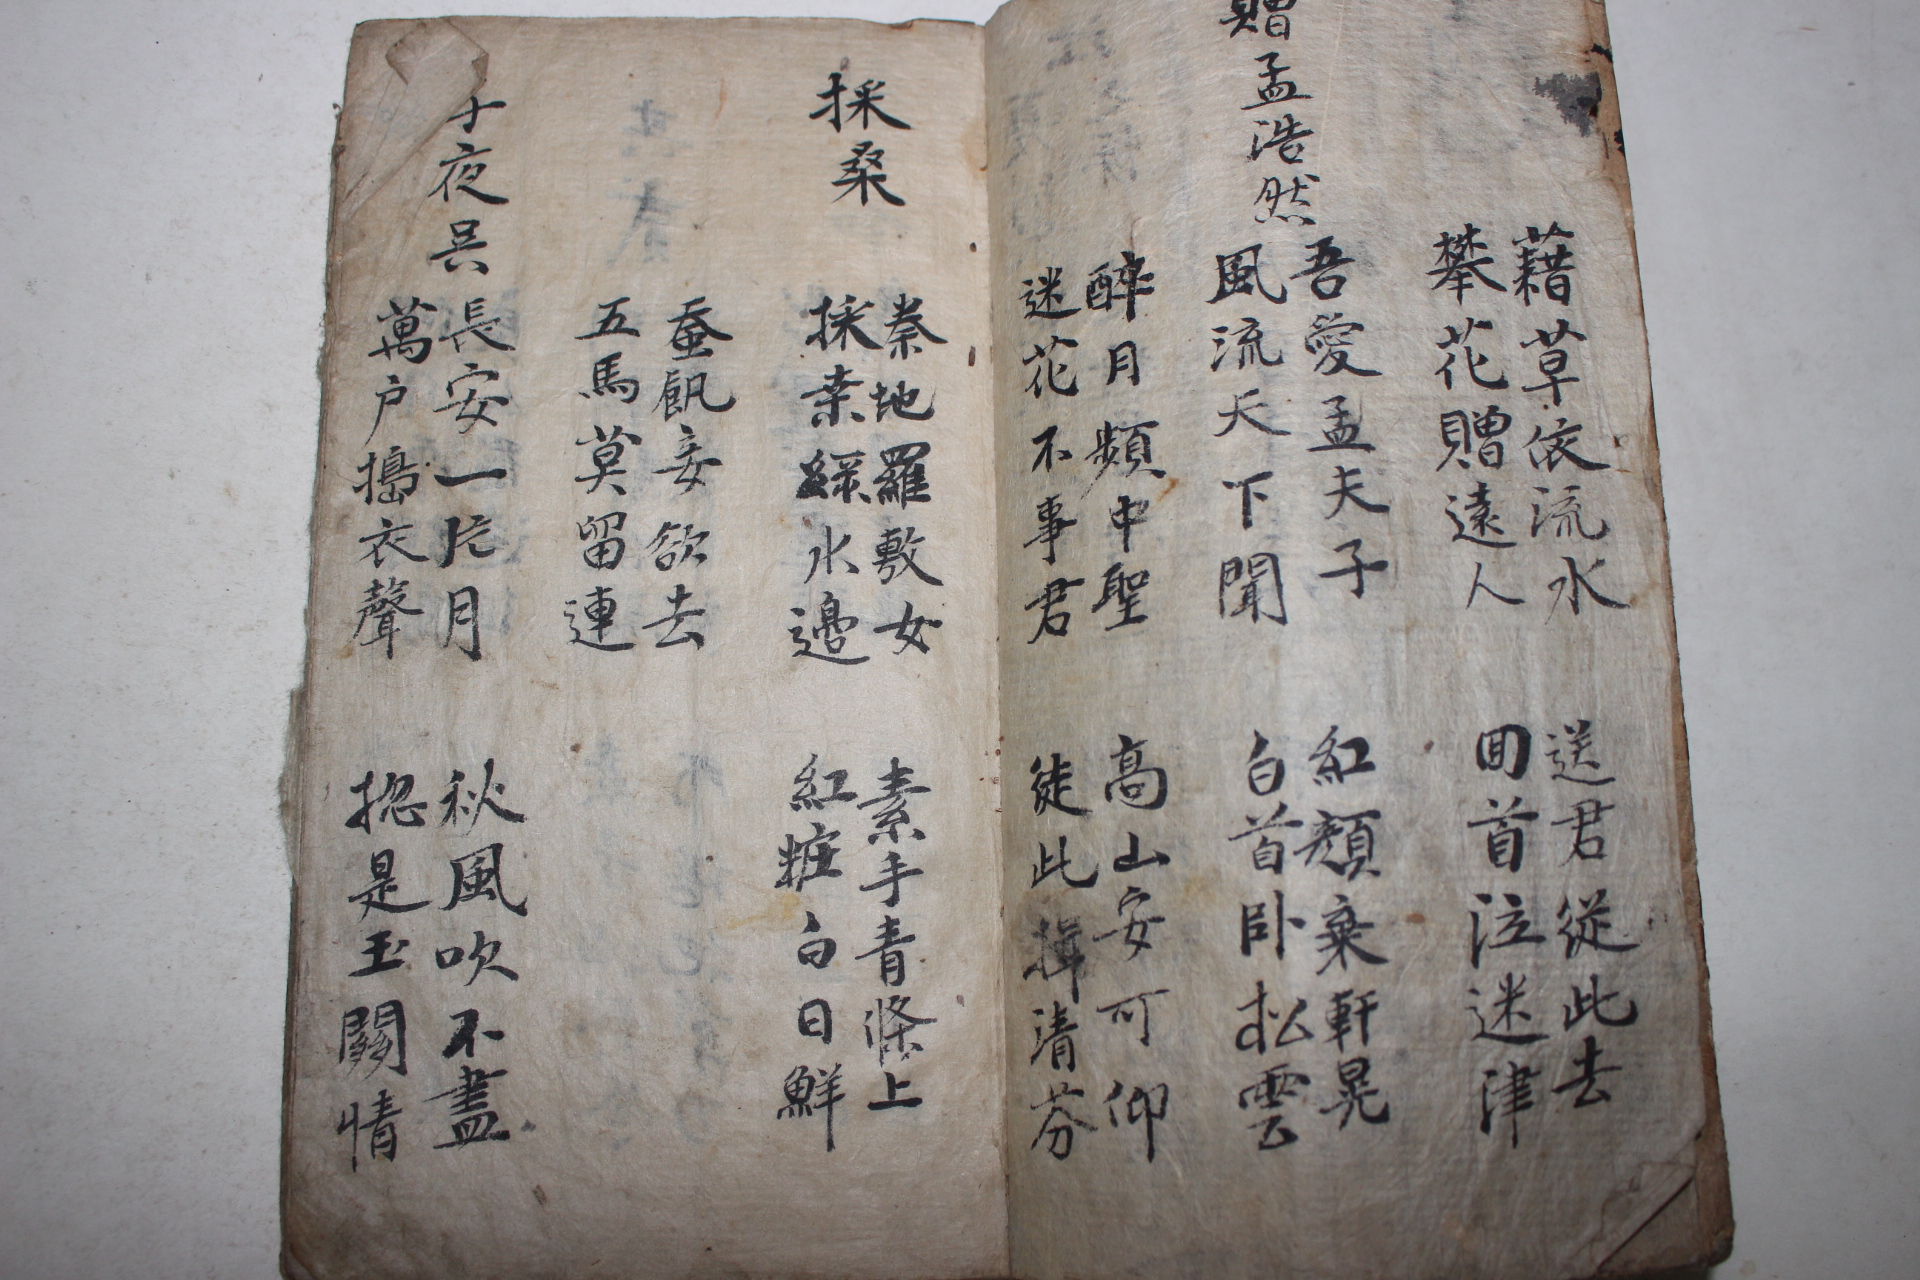 藉草依流水
攀花贈遠人
送君從此去
回首泣迷津
贈孟浩然
吾愛孟夫子
風流天下聞
紅顔棄軒晃
白首卧松雲
醉月頻申聖
迷花不事君
高山安可仰
徒此揖清芬
採桑
秦地羅敷女
採桒綠水邊
素手青條上
紅粧白日鮮
蚕飢妾欲去
五馬莫留連
子夜吴
長安一片月
萬户搗衣聲
秋風吹不盡
揔是玉關情